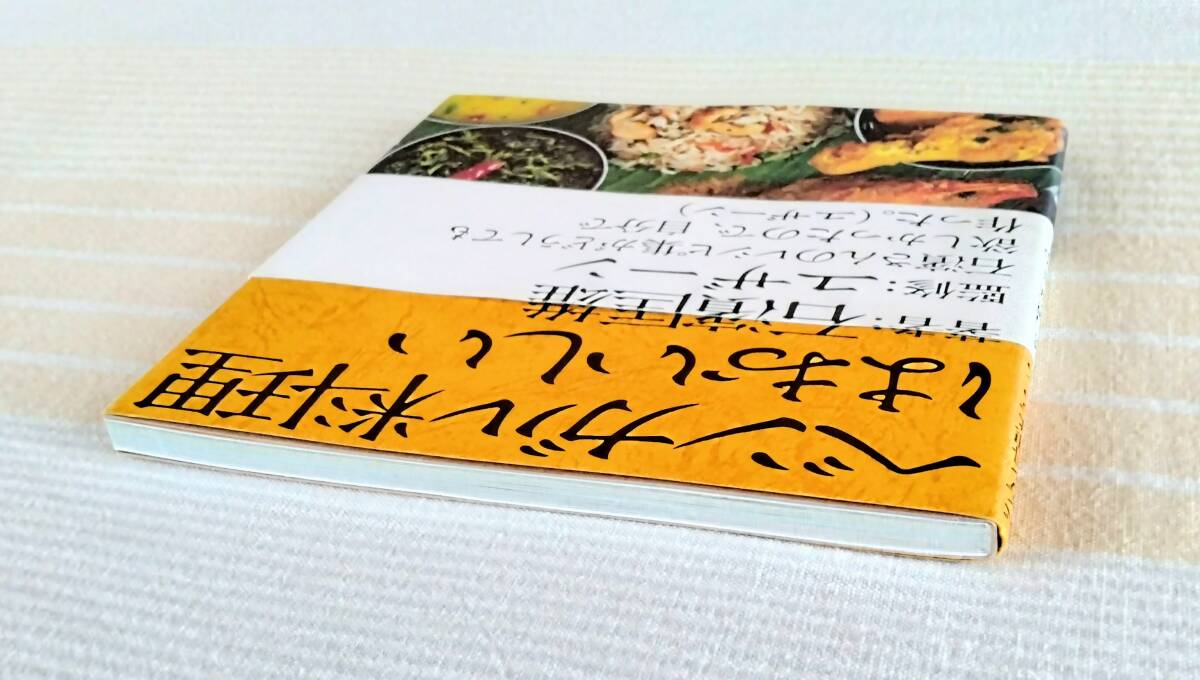 ベンガル料理
はおいしい、
著者:石濱匡雄
監修:ユザーン
石濱さんのレシピ集がどうしても
欲しかったので、自分で
作った。(ユザーン)